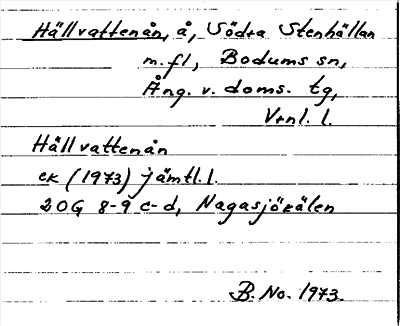 Hällvattenån, å, Södra Stenhällan
m.fl, Bodums sn,
Ång. v. doms. tg,
Vrnl. l.
Hällvattenån
ek (1973) jämtl. l.
20G 8-9 c-d, Nagasjökälen
B. No. 1973.